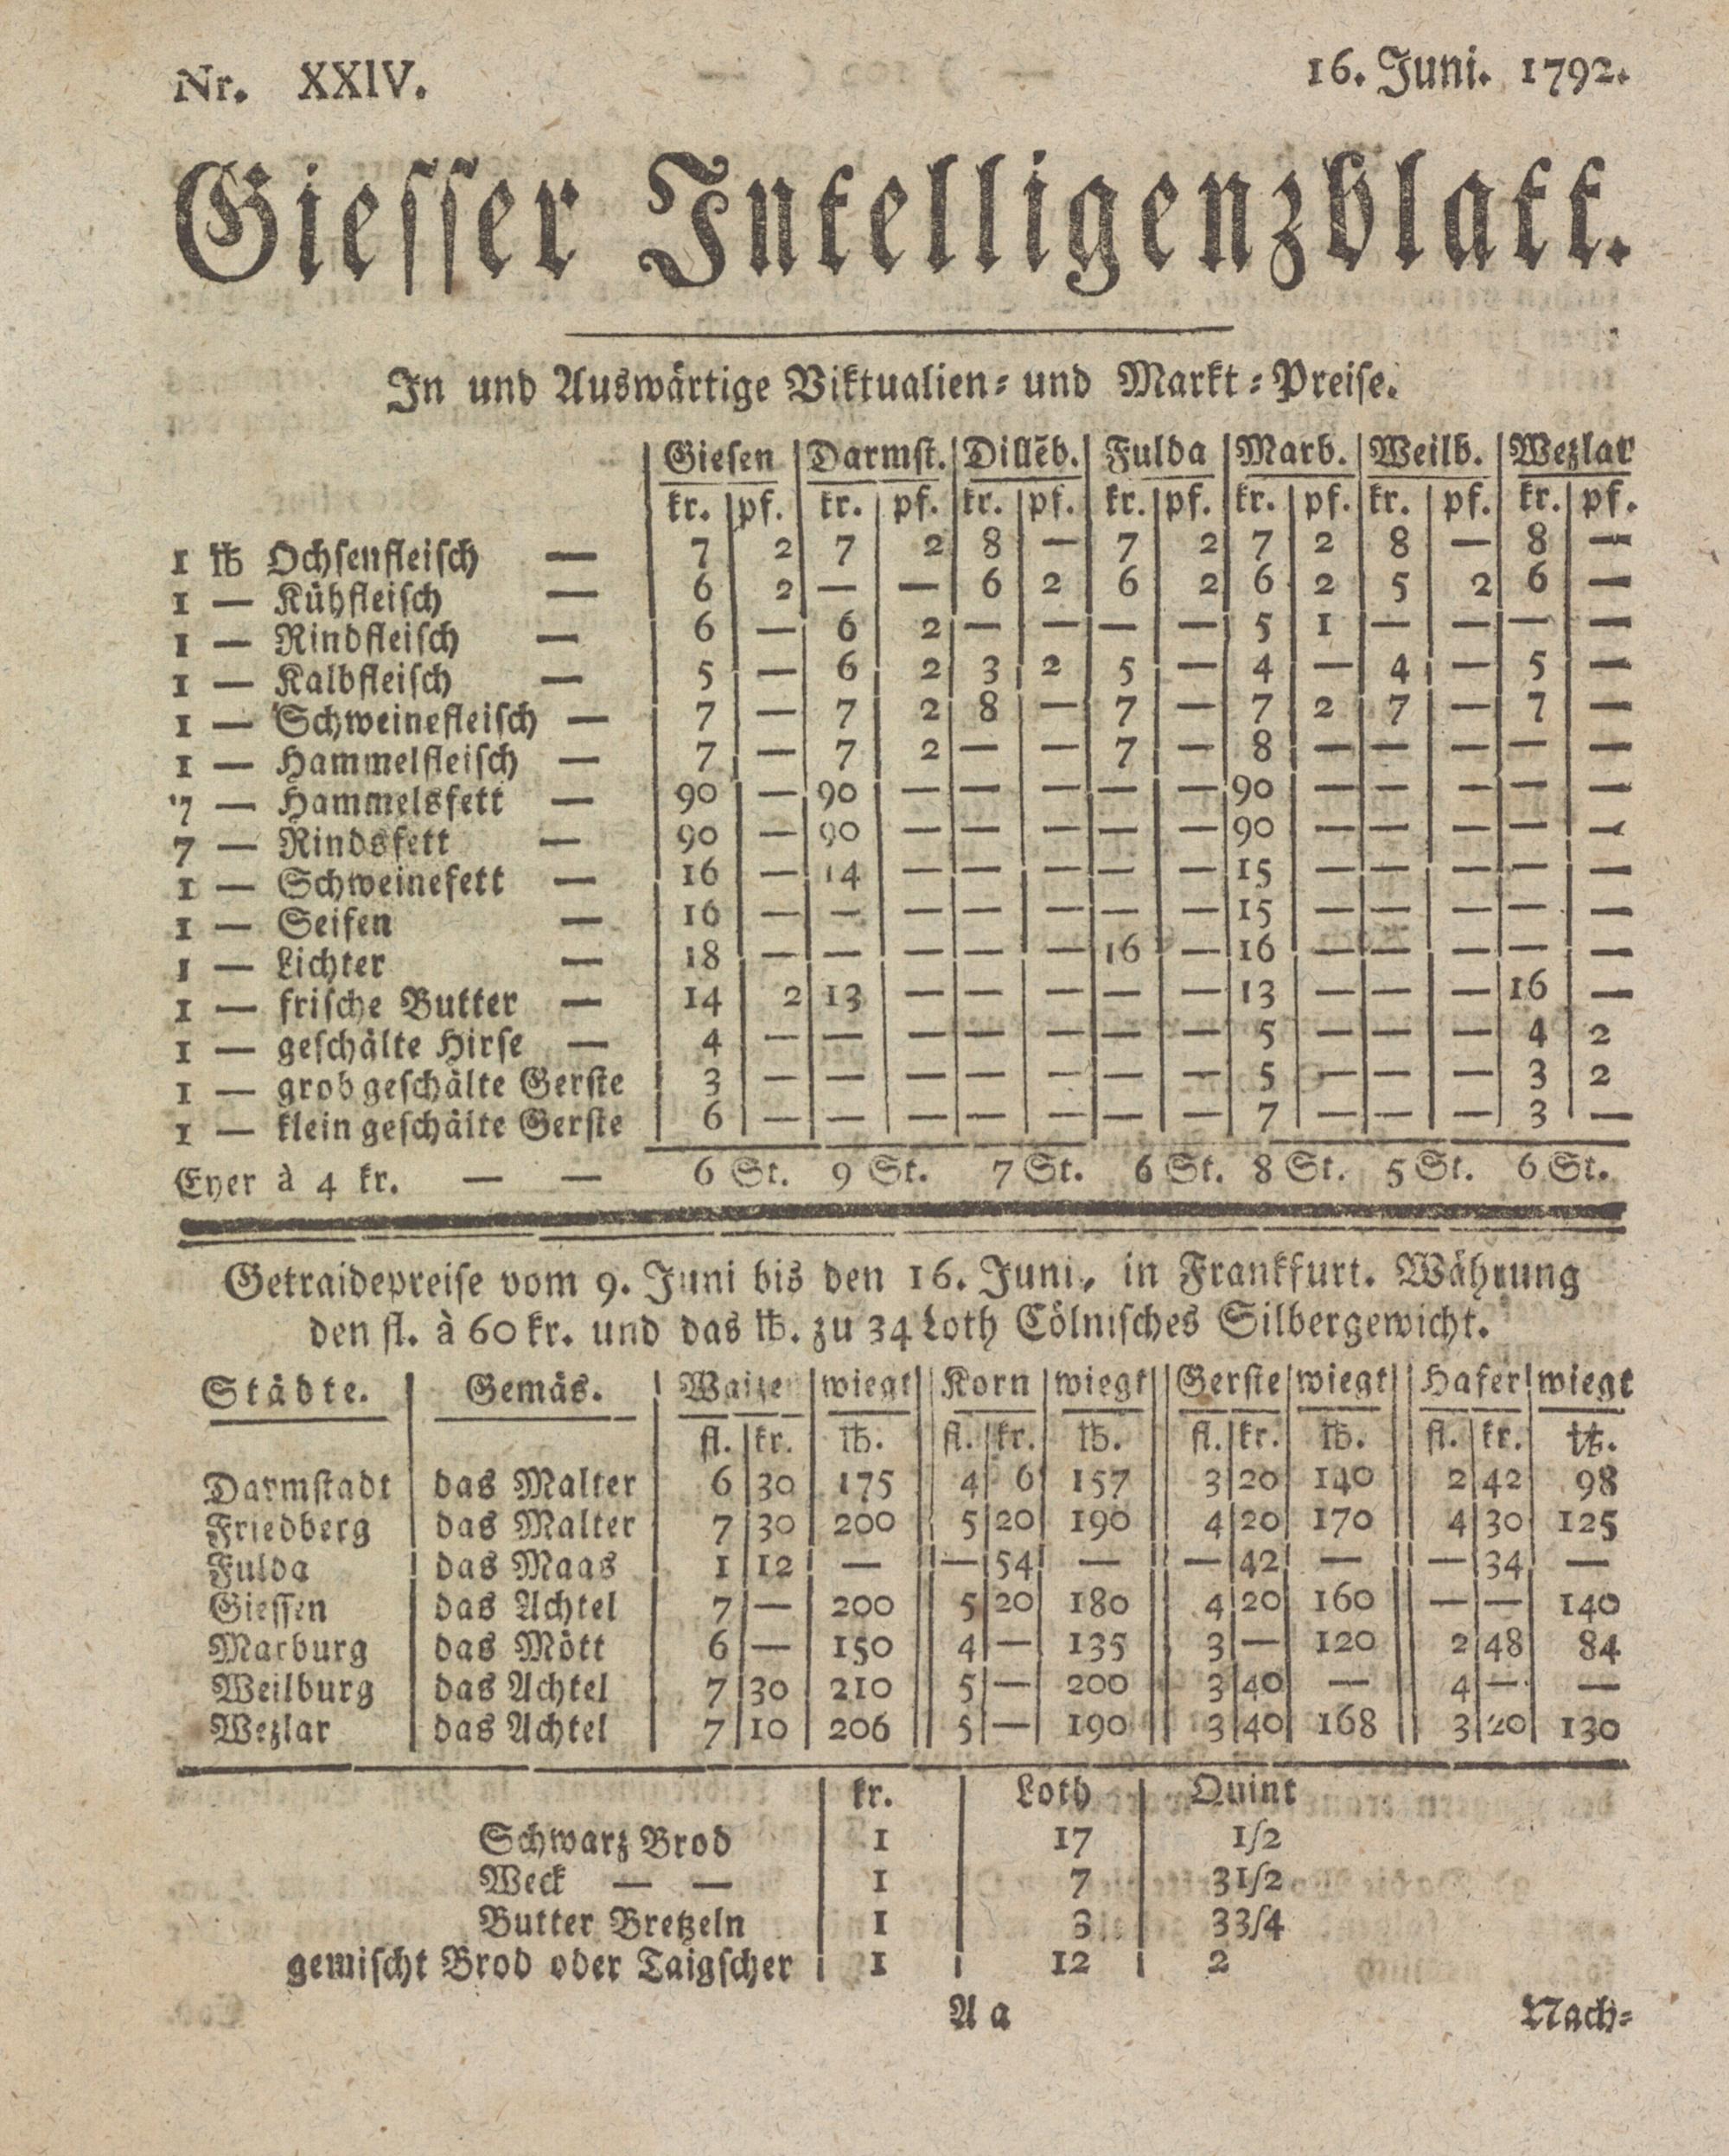 Nr. XXIV. 16. Juni. 1792.
Giesser Intelligenzblatt.
In und Auswärtige Viktualien- und Markt-Preise.
Giesen Darmst. Dillēb. Fulda Marb. Weilb. Wezlar
kr. pf. kr. pf. kr. pf. kr. pf. kr. pf. kr. pf. kr. pf.
1 ℔ Ochsenfleisch — 7 2 7 2 8 — 7 2 7 2 8 — 8 —
1 — Kühfleisch — 6 2 — — 6 2 6 2 6 2 5 2 6 —
1 — Rindfleisch — 6 — 6 2 — — — — 5 1 — — — —
1 — Kalbfleisch — 5 — 6 2 3 2 5 — 4 — 4 — 5 —
1 — Schweinefleisch — 7 — 7 2 8 — 7 — 7 2 7 — 7 —
1 — Hammelfleisch — 7 — 7 2 — — 7 — 8 — — — — —
7 — Hammelsfett — 90 — 90 — — — — — 90 — — — — —
7 — Rindsfett — 90 — 90 — — — — — 90 — — — — —
1 — Schweinefett — 16 — 14 — — — — — 15 — — — — —
1 — Seifen — 16 — — — — — — — 15 — — — — —
1 — Lichter — 18 — — — — — 16 — 16 — — — — —
1 — frische Butter — 14 2 13 — — — — — 13 — — — 16 —
1 — geschälte Hirse — 4 — — — — — — — 5 — — — 4 2
1 — grob geschälte Gerste 3 — — — — — — — 5 — — — 3 2
1 — klein geschälte Gerste 6 — — — — — — — 7 — — — 3 —
Eyer à 4 kr. — — 6 St. 9 St. 7 St. 6 St. 8 St. 5 St. 6 St.
Getraidepreise vom 9. Juni bis den 16. Juni, in Frankfurt. Währung
den fl. à 60 kr. und das ℔. zu 34 Loth Cölnisches Silbergewicht.
Städte. Gemäs. Waizen wiegt Korn wiegt Gerste wiegt Hafer wiegt
fl. kr. ℔. fl. kr. ℔. fl. kr. ℔. fl. kr. ℔.
Darmstadt das Malter 6 30 175 4 6 157 3 20 140 2 42 98
Friedberg das Malter 7 30 200 5 20 190 4 20 170 4 30 125
Fulda das Maas 1 12 — — 54 — — 42 — — 34 —
Giessen das Achtel 7 — 200 5 20 180 4 20 160 — — 140
Marburg das Mött 6 — 150 4 — 135 3 — 120 2 48 84
Weilburg das Achtel 7 30 210 5 — 200 3 40 — 4 — —
Wezlar das Achtel 7 10 206 5 — 190 3 40 168 3 20 130
kr. Loth Quint
Schwarz Brod 1 17 1/2
Weck — — 1 7 3 1/2
Butter Bretzeln 1 3 3 3/4
gemischt Brod oder Taigscher 1 12 2
A a Nach-